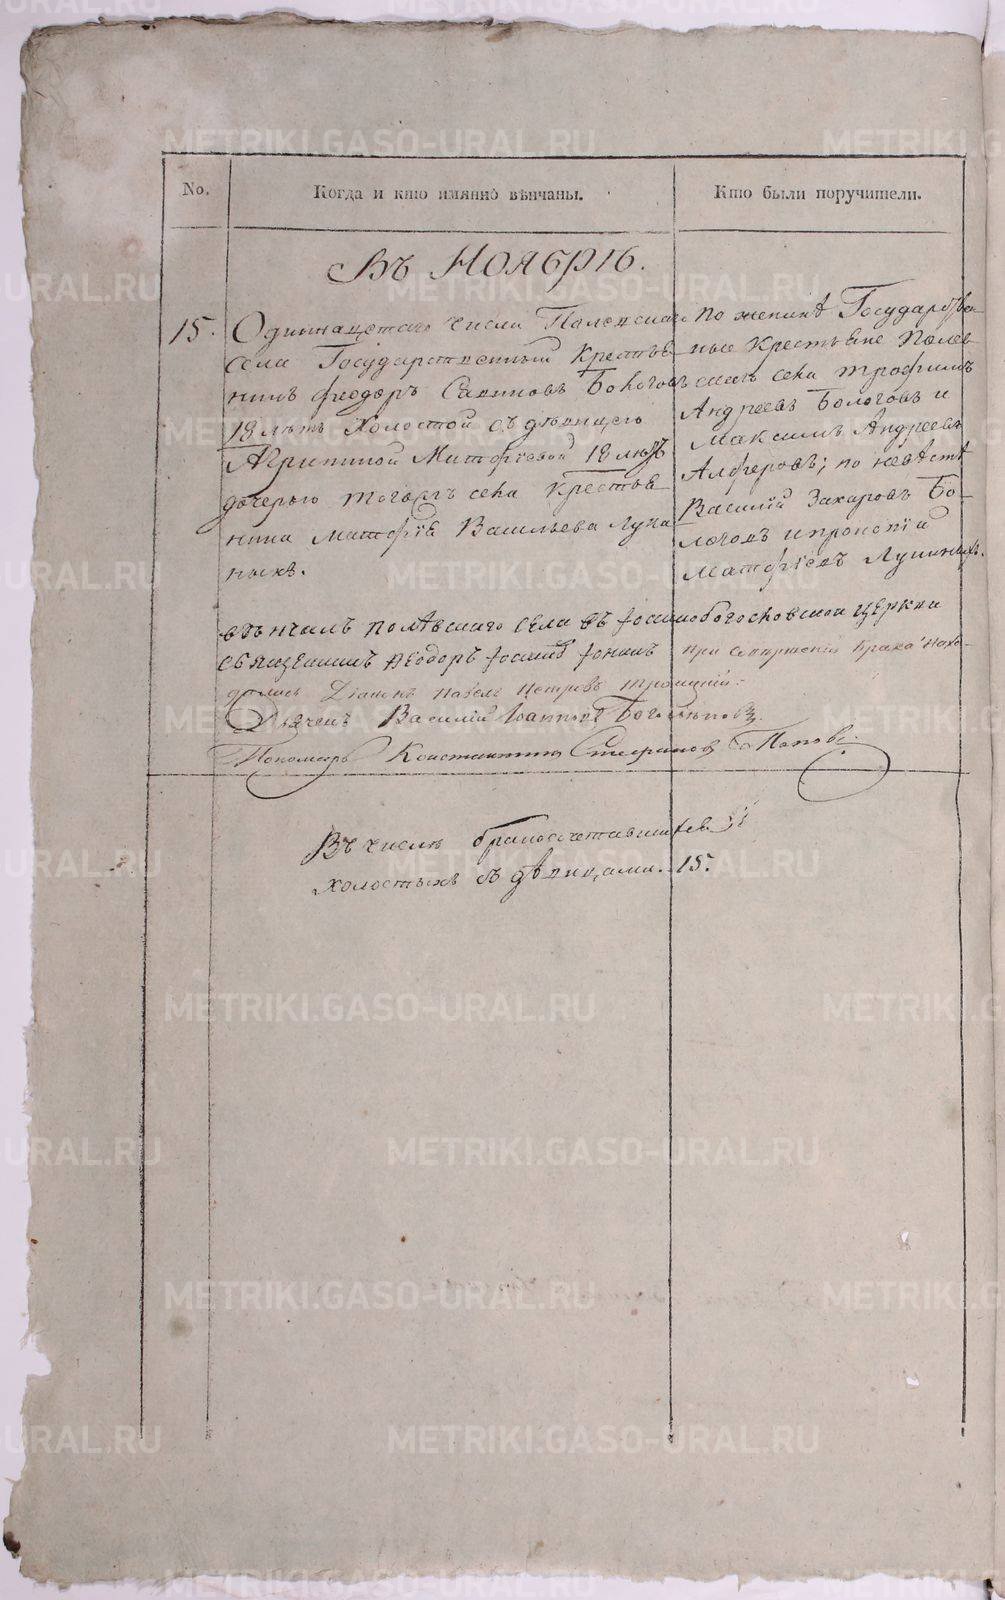 No.
Когда и кто имянно вѣнчаны.
Кто были поручители.
Въ Ноябрѣ.
15.
Одиннацетаго числа Полевскаго
села Государственный Крестья-
нинъ Феодоръ Саввиновъ Бологовъ
18 лѣтъ Холостой съ дѣвицею
Агрипиной Матфіевой 18 лѣтъ
дочерью тогожъ села Крестья-
нина Матфія Васильева Луки-
ныхъ.
По женихѣ Государствен-
ные Крестьяне Полев-
скаго села Трофимъ
Андреевъ Бологовъ и
Максимъ Андреевъ
Алферовъ; по невѣстѣ
Василій Захаровъ Бо-
логовъ и
Матфіевъ Лукиныхъ.
вѣнчалъ Полѣвскаго села въ Іоаннобогословской церкви
священникъ Ѳеодоръ Іоаннов Іонинъ при сопряженіи брака нахо-
дились Діаконъ Павелъ Петровъ Троицкій.
Дьячекъ Василій Іоанновъ
Пономарь Константинъ Стефановъ Поповъ.
Въ числѣ бракосочетавшихся
холостыхъ съ дѣвицами. 15.
METRIKI.GASO-URAL.RU